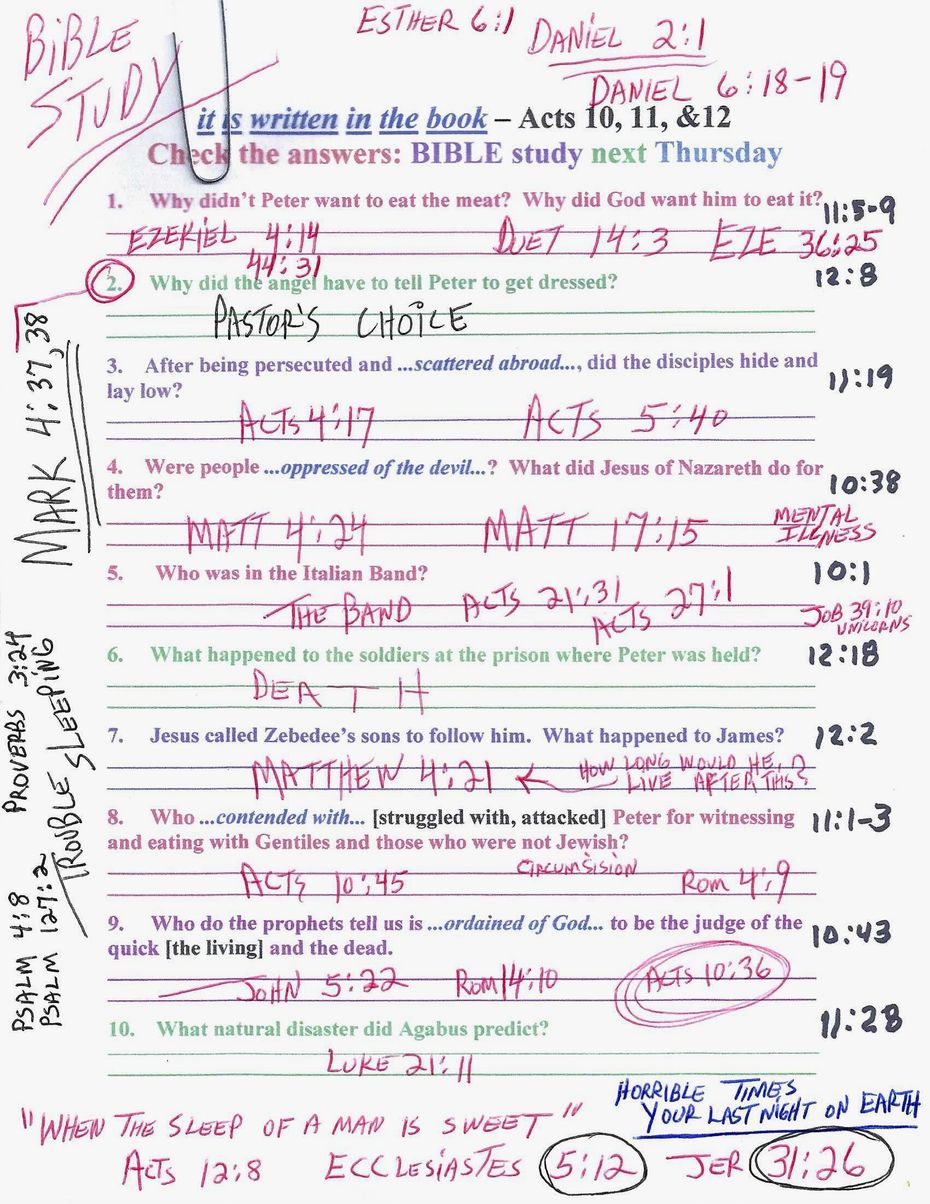 BIBLE
STUDY
ESTHER 6:1
DANIEL 2:1
DANIEL 6:18-19
it is written in the book – Acts 10, 11, &12
Check the answers: BIBLE study next Thursday
1. Why didn't Peter want to eat the meat? Why did God want him to eat it?
11:5-9
EZEKIEL 4:14
44:31
DUET 14:3
EZE 36:25
2. Why did the angel have to tell Peter to get dressed?
12:8
PASTOR'S CHOICE
MARK 4:37,38
3. After being persecuted and ...scattered abroad..., did the disciples hide and
lay low?
11:19
ACTS 4:17
ACTS 5:40
4. Were people ...oppressed of the devil...? What did Jesus of Nazareth do for
them?
10:38
MATT 4:24
MATT 17:15
MENTAL
ILLNESS
5. Who was in the Italian Band?
10:1
THE BAND
ACTS 21:31
ACTS 27:1
JOB 39:10
UNICORNS
6. What happened to the soldiers at the prison where Peter was held?
12:18
DEATH
7. Jesus called Zebedee's sons to follow him. What happened to James?
12:2
MATTHEW 4:21
HOW LONG WOULD HE
LIVE AFTER THIS?
8. Who ...contended with... [struggled with, attacked] Peter for witnessing
and eating with Gentiles and those who were not Jewish?
11:1-3
ACTS 10:45
CIRCUMSISION
ROM 4:9
9. Who do the prophets tell us is ...ordained of God... to be the judge of the
quick [the living] and the dead.
10:43
JOHN 5:22
ROM 14:10
ACTS 10:36
10. What natural disaster did Agabus predict?
11:28
LUKE 21:11
PSALM 4:8 PROVERBS 3:24
PSALM 127:2
TROUBLE SLEEPING
HORRIBLE TIMES
YOUR LAST NIGHT ON EARTH
"WHEN THE SLEEP OF A MAN IS SWEET"
ACTS 12:8 ECCLESIASTES 5:12 JER 31:26